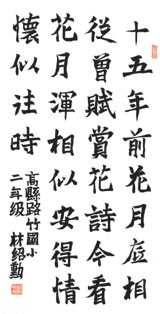 十五年前花月底相
從曾賦賞花詩今看
花月渾相似安得情
懷似往時
高縣路竹國小
二年級 林紹勳